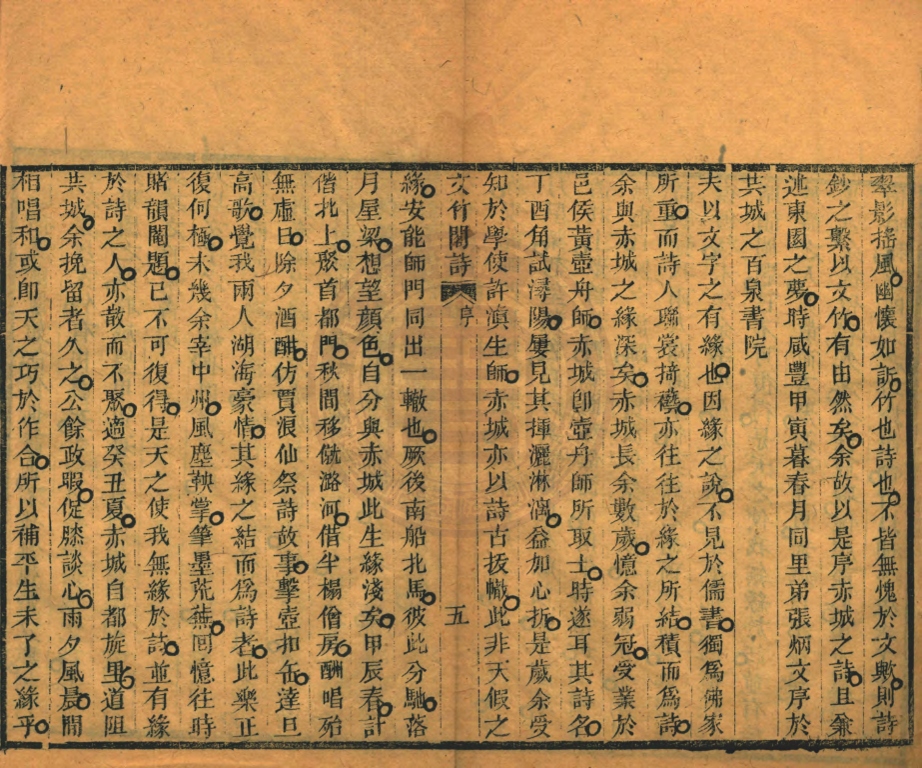 羣影搖風幽懷如訴竹也詩也不皆無愧於文歟則詩
鈔之繫以文竹有由然矣余故以是序赤城之詩且兼
述東園之夢時咸豐甲寅暮春月同里弟張炳文序於
共城之百泉書院
夫以文字之有緣也因緣之說不見於儒書獨爲佛家
所重而詩人聯裳掎襼亦往往於緣之所結積而爲詩
余與赤城之緣深矣赤城長余數歲憶余弱冠受業於
邑侯黃壺舟師赤城卽壺舟師所取士時遂耳其詩名
丁酉角試潯陽屢見其揮灑淋漓益加心折是歲余受
知於學使許滇生師赤城亦以詩古拔轍此非天假之
文竹閣詩 序 五
緣安能師門同出一轍也厥後南船北馬彼此分馳落
月屋梁想望顏色自分與赤城此生緣淺矣甲辰春計
偕北上聚首都門秋間移僦潞河借半榻僧房酬唱殆
無虛日除夕酒酣仿賈浪仙祭詩故事擊壺扣缶達旦
高歌覺我兩人湖海豪情其緣之結而爲詩者此樂正
復何極未幾余宰中州風塵鞅掌筆墨荒蕪囘憶往時
賭韻鬮題已不可復得是天之使我無緣於詩並有緣
於詩之人亦散而不聚適癸丑夏赤城自都旋里道阻
共城余挽留者久之公餘政暇促膝談心雨夕風晨間
相唱和或卽天之巧於作合所以補平生未了之緣乎